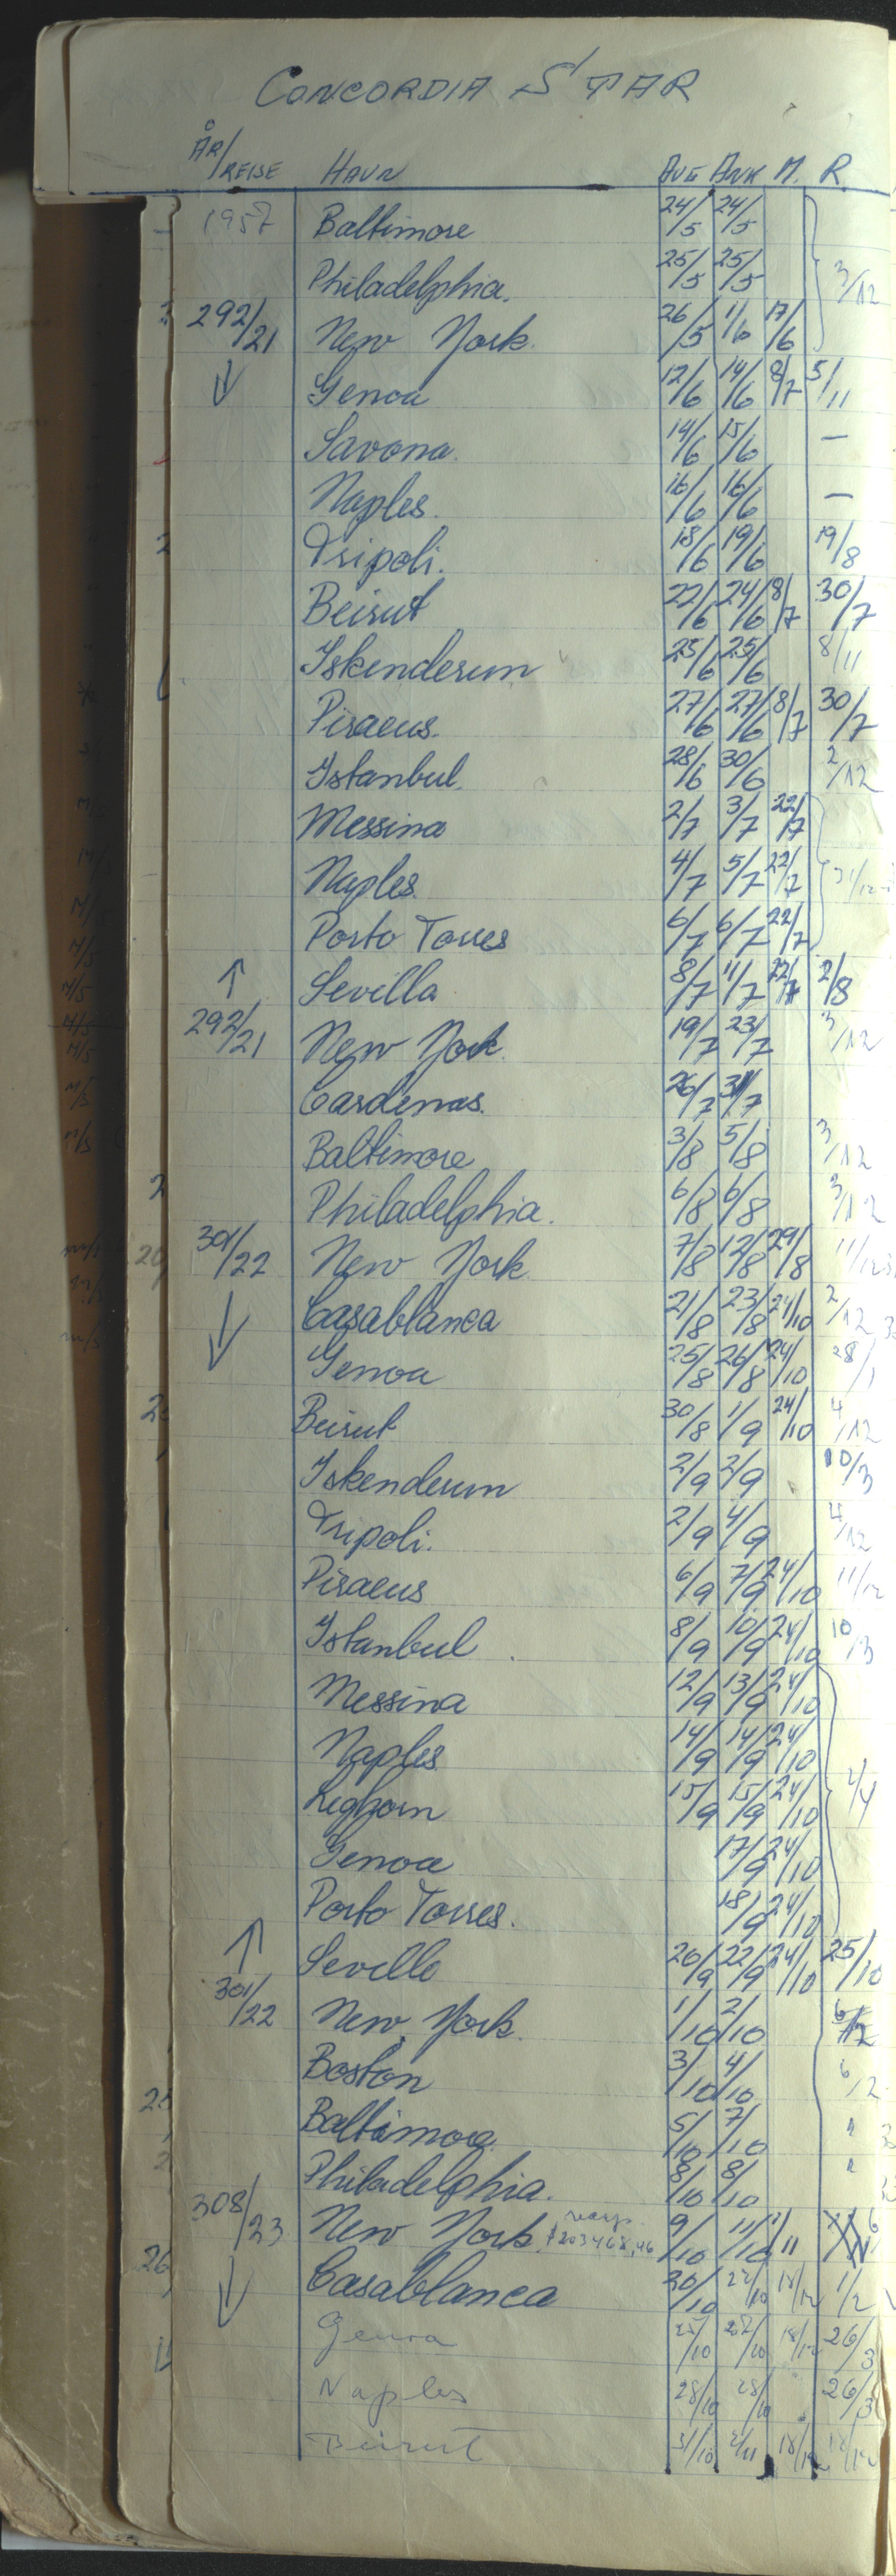 CONCORDIA STAR
ÅR/REISE HAVN AVG ANK M. R.
1957 Baltimore 24/5 24/5
Philadelphia. 25/5 25/5 3/12
292/21 New York. 26/5 1/6 17/6
↓ Genoa 12/6 14/6 8/7 5/11
Savona. 14/6 15/6 —
Naples. 16/6 16/6 —
Tripoli. 18/6 19/6 19/8
Beirut 22/6 24/6 8/7 30/7
Iskenderun 25/6 25/6 8/11
Piraeus. 27/6 27/6 8/7 30/7
Istanbul. 28/6 30/6 2/12
Messina 2/7 3/7 22/7
Naples. 4/7 5/7 22/7
Porto Torres 6/7 6/7 22/7
↑ Sevilla 8/7 11/7 22/7 2/8
292/21 New York. 19/7 23/7 3/12
Cardenas. 26/7 31/7
Baltimore 3/8 5/8 3/12
Philadelphia. 6/8 6/8 3/12
301/22 New York 7/8 12/8 29/8
↓ Casablanca 21/8 23/8 24/10 2/12
Genoa 25/8 26/8 24/10 28/1
Beirut 30/8 1/9 24/10 4/12
Iskenderun 2/9 2/9 10/3
Tripoli. 2/9 4/9 4/12
Piraeus 6/9 7/9 24/10 11/12
Istanbul 8/9 10/9 24/10 10/3
Messina 12/9 13/9 24/10
Naples 14/9 14/9 24/10
Leghorn 15/9 15/9 24/10
Genoa 17/9 24/10
Porto Torres. 18/9 24/10
↑ Seville 20/9 22/9 24/10 25/10
301/22 New York. 1/10 2/10
Boston 3/10 4/10 6/2
Baltimore 5/10 7/10 "
Philadelphia. 8/10 8/10 "
308/23 New York. 9/10 11/10 1/11
↓ Casablanca 20/10 22/10 18/12 1/2
Genoa 25/10 27/10 18/12 26/3
Naples 28/10 28/10 26/3
Beirut 31/10 2/11 18/12 18/12